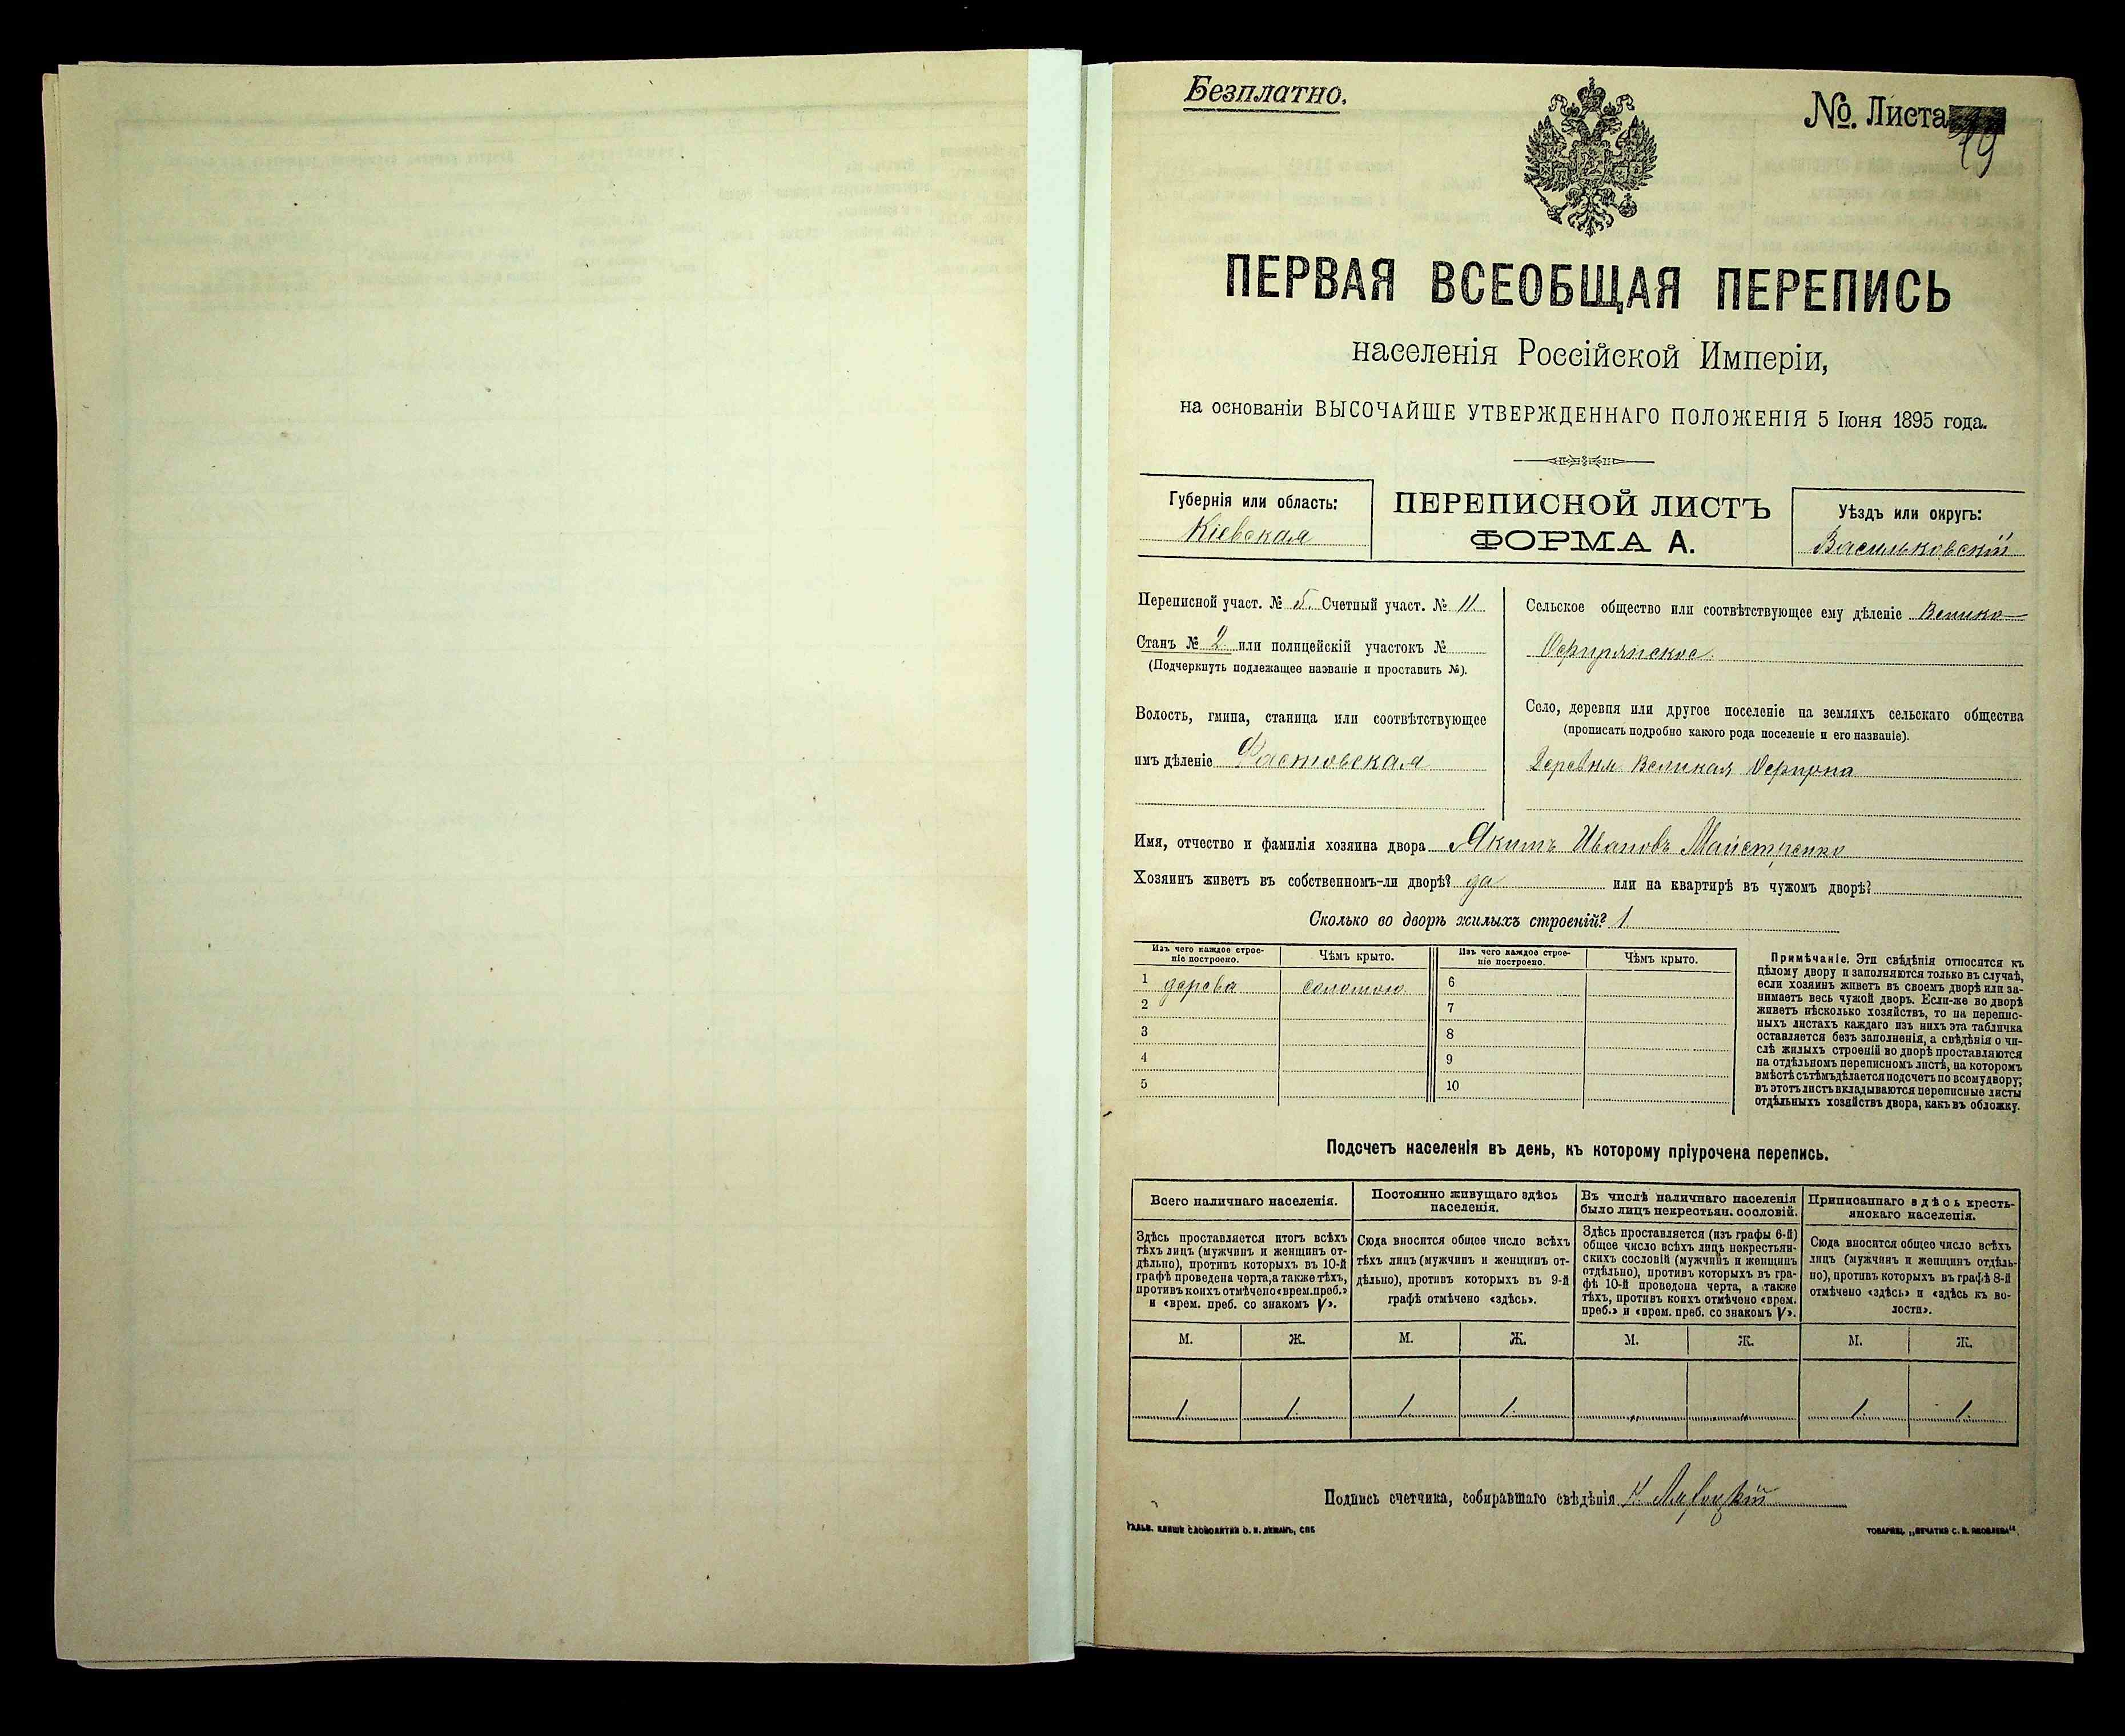 Безплатно.
№. Листа 19
ПЕРВАЯ ВСЕОБЩАЯ ПЕРЕПИСЬ
населенія Россійской Имперіи,
на основаніи ВЫСОЧАЙШЕ УТВЕРЖДЕННАГО ПОЛОЖЕНІЯ 5 Іюня 1895 года.
Губернія или область:
Кіевская
ПЕРЕПИСНОЙ ЛИСТЪ
ФОРМА А.
Уѣздъ или округъ:
Васильковскій
Переписной участ. № 5. Счетный участ. № 11.
Станъ № 2. или полицейскій участокъ №
(Подчеркнуть подлежащее названіе и проставить №).
Волость, гмина, станица или соотвѣтствующее
имъ дѣленіе Фастовская
Сельское общество или соотвѣтствующее ему дѣленіе Велико-
Село, деревня или другое поселеніе на земляхъ сельскаго общества
(прописать подробно какого рода поселеніе и его названіе).
Деревня Великая
Имя, отчество и фамилія хозяина двора Якимъ Ивановъ Майстренко
Хозяинъ живетъ въ собственномъ-ли дворѣ? да или на квартирѣ въ чужомъ дворѣ?
Сколько во дворѣ жилыхъ строеній? 1
Изъ чего каждое строе-
ніе построено.
Чѣмъ крыто.
Изъ чего каждое строе-
ніе построено.
Чѣмъ крыто.
1 дерева соломою 6
2 7
3 8
4 9
5 10
Примѣчаніе. Эти свѣдѣнія относятся къ
цѣлому двору и заполняются только въ случаѣ,
если хозяинъ живетъ въ своемъ дворѣ или за-
нимаетъ весь чужой дворъ. Если-же во дворѣ
живетъ нѣсколько хозяйствъ, то на перепис-
ныхъ листахъ каждаго изъ нихъ эта табличка
оставляется безъ заполненія, а свѣдѣнія о чи-
слѣ жилыхъ строеній во дворѣ проставляются
на отдѣльномъ переписномъ листѣ, на которомъ
вмѣстѣ съ тѣмъ дѣлается подсчетъ по всему двору;
въ этотъ листъ вкладываются переписные листы
отдѣльныхъ хозяйствъ двора, какъ въ обложку.
Подсчетъ населенія въ день, къ которому пріурочена перепись.
Всего наличнаго населенія.
Здѣсь проставляется итогъ всѣхъ
тѣхъ лицъ (мужчинъ и женщинъ от-
дѣльно), противъ которыхъ въ 10-й
графѣ проведена черта, а также тѣхъ,
противъ коихъ отмѣчено «врем. преб.»
и «врем. преб. со знакомъ V».
Постоянно живущаго здѣсь
населенія.
Сюда вносится общее число всѣхъ
тѣхъ лицъ (мужчинъ и женщинъ от-
дѣльно), противъ которыхъ въ 9-й
графѣ отмѣчено «здѣсь».
Въ числѣ наличнаго населенія
было лицъ некрестьян. сословій.
Здѣсь проставляется (изъ графы 6-й)
общее число всѣхъ лицъ некрестьян-
скихъ сословій (мужчинъ и женщинъ
отдѣльно), противъ которыхъ въ гра-
фѣ 10-й проведена черта, а также
тѣхъ, противъ коихъ отмѣчено «врем.
преб.» и «врем. преб. со знакомъ V».
Приписаннаго здѣсь кресть-
янскаго населенія.
Сюда вносится общее число всѣхъ
лицъ (мужчинъ и женщинъ отдѣль-
но), противъ которыхъ въ графѣ 8-й
отмѣчено «здѣсь» и «здѣсь къ во-
лости».
М. Ж. М. Ж. М. Ж. М. Ж.
1. 1. 1. 1. „ „ 1. 1.
Подпись счетчика, собиравшаго свѣдѣнія
ГАЛЬВ. КЛИШЕ СЛОВОЛИТНИ О. И. ЛЕМАНЪ, СПБ
ТОВАРИЩ. „ПЕЧАТНЯ С. П. ЯКОВЛЕВА“.